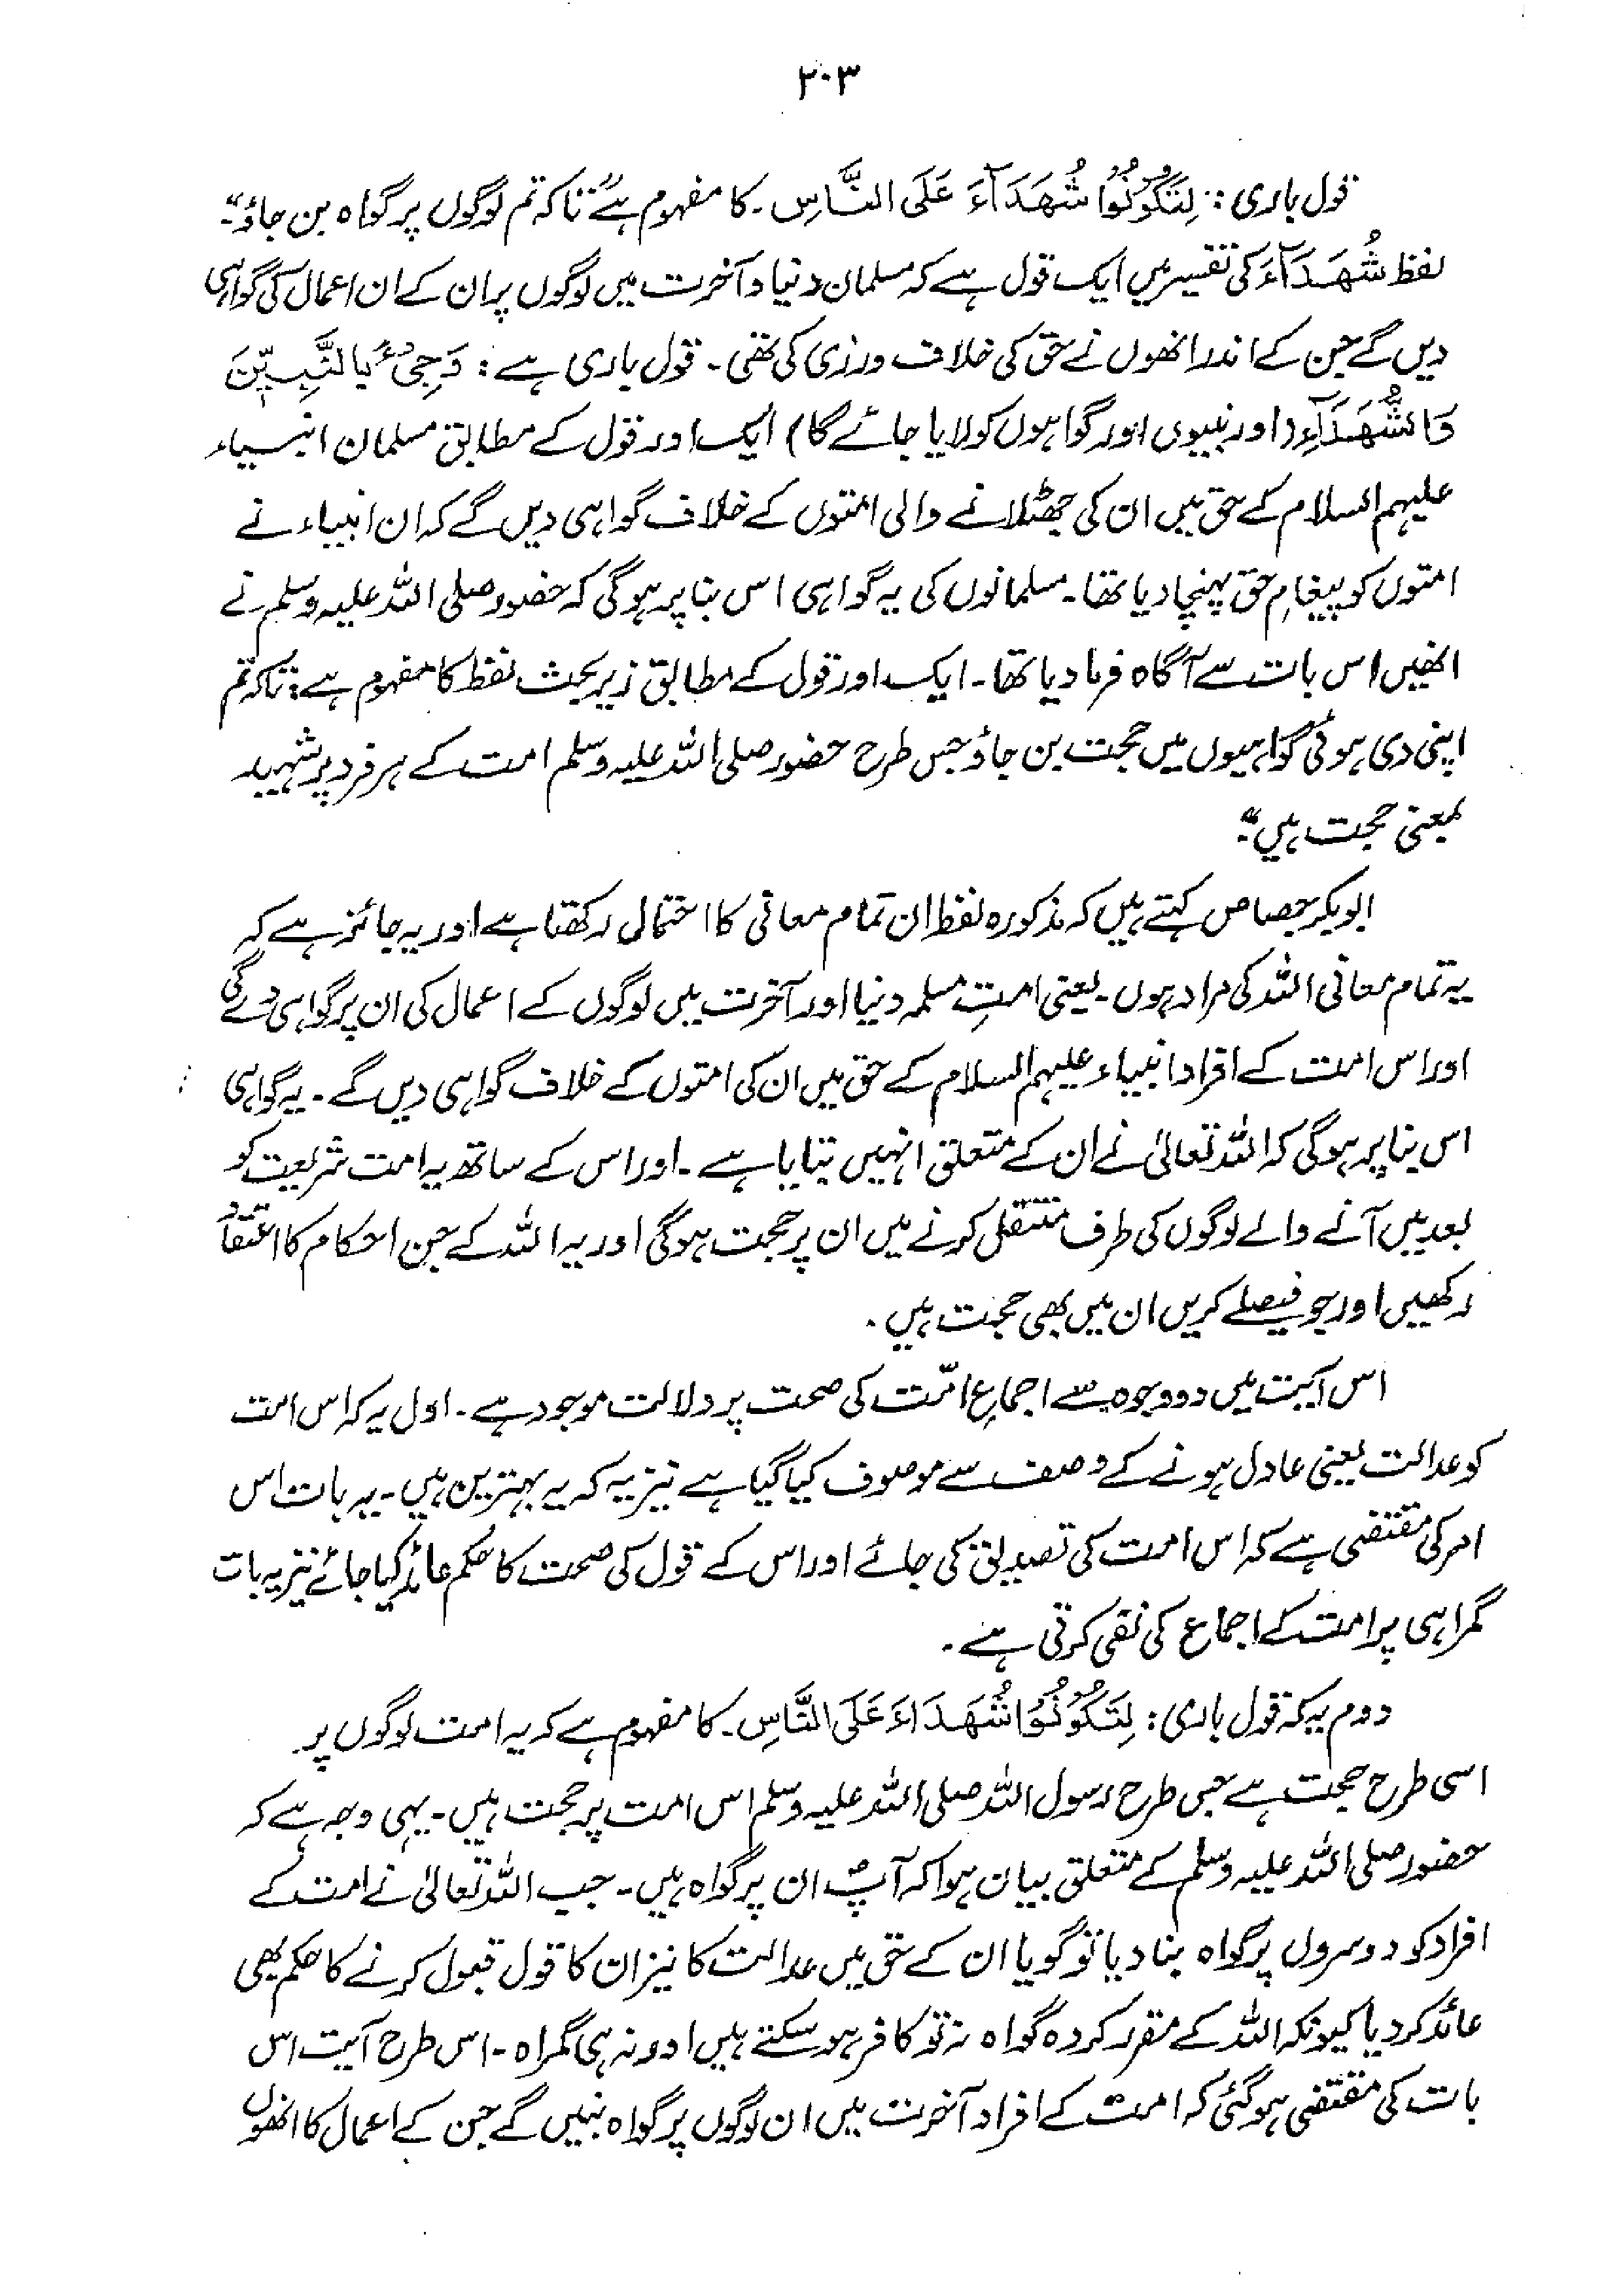 ۲۰۳
قول باری: لِتَکُوْنُوْا شُھَدَآءَ عَلَی النَّاسِ۔ کا مفہوم ہے "تاکہ تم لوگوں پر گواہ بن جاؤ"۔
لفظ شُھَدَآءَ کی تفسیر میں ایک قول ہے کہ مسلمان دنیا و آخرت میں لوگوں پر ان کے ان اعمال کی گواہی
دیں گے جن کے اندر انھوں نے حق کی خلاف ورزی کی تھی۔ قول باری ہے: وَجِیْءَ بِالنَّبِیّٖنَ
وَالشُّھَدَآءِ (اور نبیوں اور گواہوں کو لایا جائے گا) ایک اور قول کے مطابق مسلمان انبیاء
علیہم السلام کے حق میں ان کی جھٹلانے والی امتوں کے خلاف گواہی دیں گے کہ ان انبیاء نے
امتوں کو پیغامِ حق پہنچا دیا تھا۔ مسلمانوں کی یہ گواہی اس بنا پر ہوگی کہ حضور صلی اللہ علیہ وسلم نے
انھیں اس بات سے آگاہ فرما دیا تھا۔ ایک اور قول کے مطابق زیر بحث لفظ کا مفہوم ہے: "تاکہ تم
اپنی دی ہوئی گواہیوں میں حجت بن جاؤ جس طرح حضور صلی اللہ علیہ وسلم امت کے ہر فرد پر شہید
بمعنی حجت ہیں"۔
ابوبکر جصاص کہتے ہیں کہ مذکورہ لفظ ان تمام معانی کا احتمال رکھتا ہے اور یہ جائز ہے کہ
یہ تمام معانی اللہ کی مراد ہوں۔ یعنی امتِ مسلمہ دنیا اور آخرت میں لوگوں کے اعمال کی ان پر گواہی دے گی
اور اس امت کے افراد انبیاء علیہم السلام کے حق میں ان کی امتوں کے خلاف گواہی دیں گے۔ یہ گواہی
اس بنا پر ہوگی کہ اللہ تعالیٰ نے ان کے متعلق انہیں بتایا ہے۔ اور اس کے ساتھ یہ امت شریعت کو
بعد میں آنے والے لوگوں کی طرف منتقل کرنے میں ان پر حجت ہوگی اور یہ اللہ کے جن احکام کا اعتقاد
رکھیں اور جو فیصلے کریں ان میں بھی حجت ہیں۔
اس آیت میں دو وجوہ سے اجماعِ امّت کی صحت پر دلالت موجود ہے۔ اول یہ کہ اس امت
کو عدالت یعنی عادل ہونے کے وصف سے موصوف کیا گیا ہے نیز یہ کہ یہ بہترین ہیں۔ یہ بات اس
امر کی مقتضی ہے کہ اس امت کی تصدیق کی جائے اور اس کے قول کی صحت کا حکم عائد کیا جائے نیز یہ بات
گمراہی پر امت کے اجماع کی نفی کرتی ہے۔
دوم یہ کہ قول باری: لِتَکُوْنُوْا شُھَدَاءَ عَلَی النَّاسِ۔ کا مفہوم ہے کہ یہ امت لوگوں پر
اسی طرح حجت ہے جس طرح رسول اللہ صلی اللہ علیہ وسلم اس امت پر حجت ہیں۔ یہی وجہ ہے کہ
حضور صلی اللہ علیہ وسلم کے متعلق بیان ہوا کہ آپؐ ان پر گواہ ہیں۔ جب اللہ تعالیٰ نے امت کے
افراد کو دوسروں پر گواہ بنا دیا تو گویا ان کے حق میں عدالت کا نیز ان کا قول قبول کرنے کا حکم بھی
عائد کر دیا کیونکہ اللہ کے مقرر کردہ گواہ نہ تو کافر ہو سکتے ہیں اور نہ ہی گمراہ۔ اس طرح آیت اس
بات کی مقتضی ہوگئی کہ امت کے افراد آخرت میں ان لوگوں پر گواہ بنیں گے جن کے اعمال کا انھوں